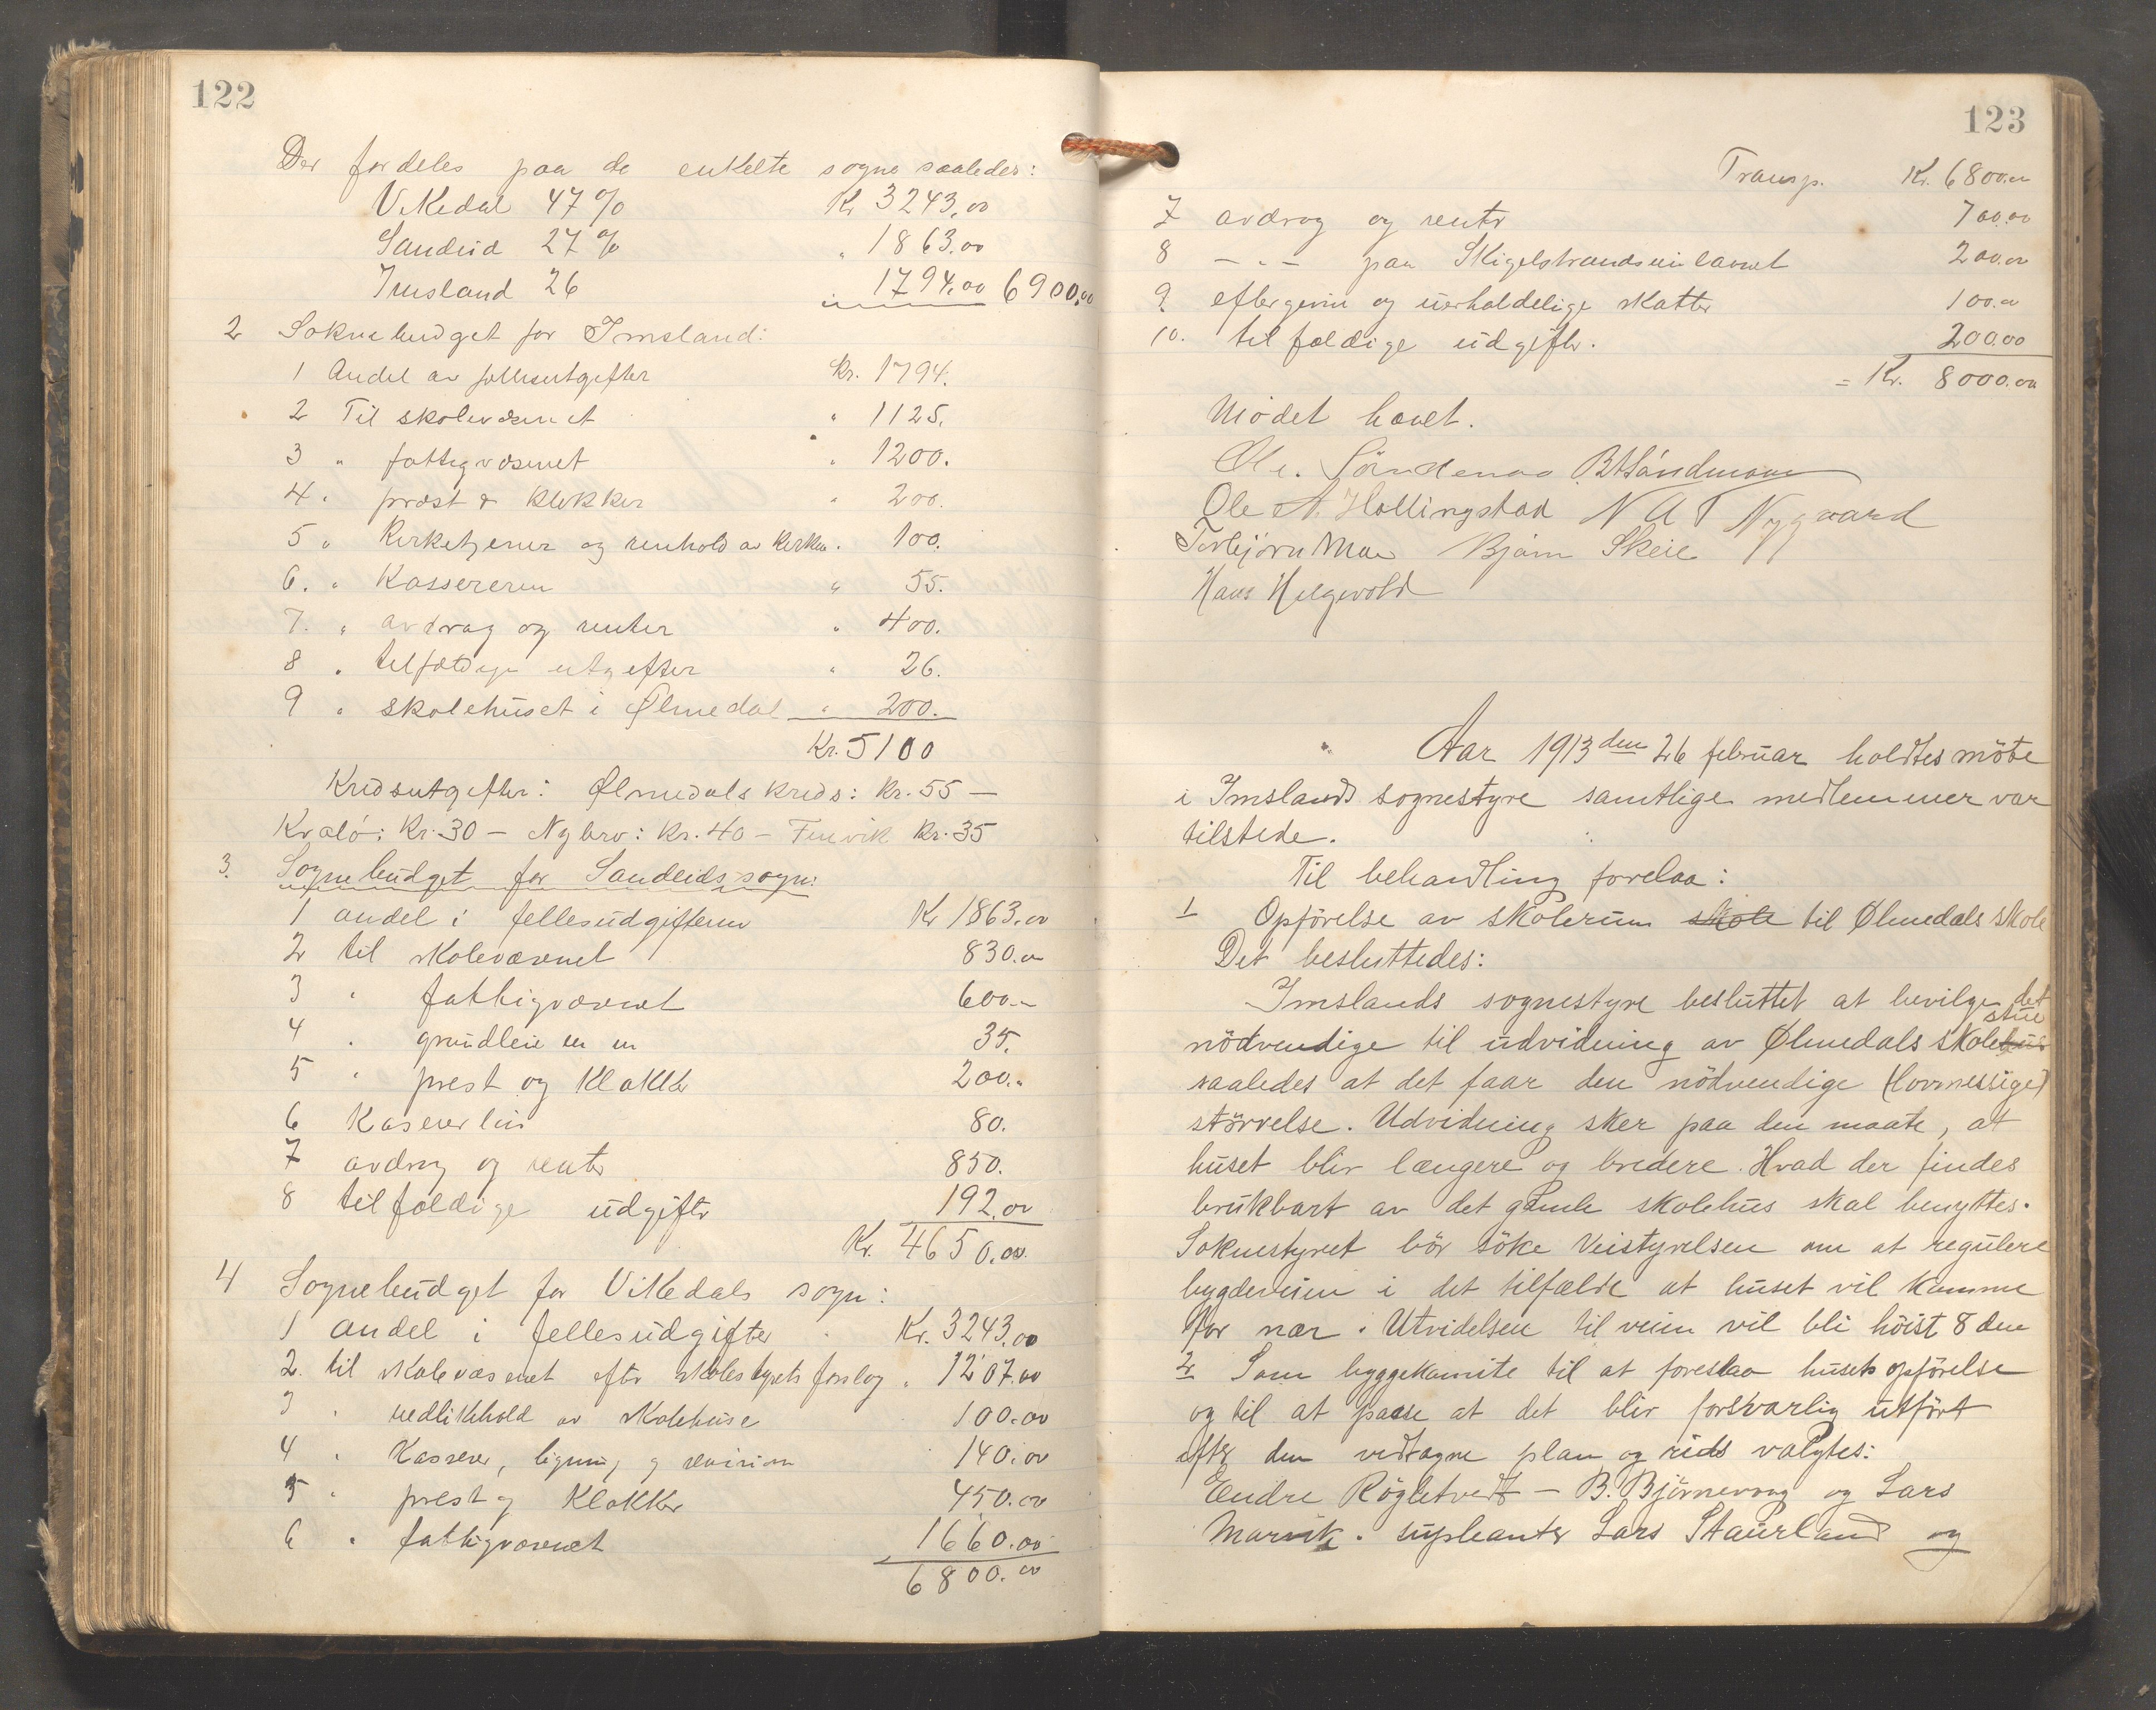 122
Der fordeles paa de enkelte sogne saaledes:
Vikedal 47% Kr 3243.00
Sandeid 27% " 1863.00
Imsland 26 " 1794.00 6900.00
2 Soknebudget for Imsland:
1 Andel av fellesutgifter Kr. 1794.
2 Til skolevæsenet " 1125.
3 " fattigvæsenet " 1200.
4 " præst & klokker " 200.
5 " Kirketjener og renhold av kirken " 100.
6. " Kassereren " 55.
7. " avdrag og renter " 400.
8 " tilfældige utgifter " 26.
9 " skolehuset i Ølmedal " 200.
Kr. 5100
Kredsutgifter: Ølmedals kreds: Kr. 55 —
Kvalö: Kr. 30 — Nybrö: Kr. 40 — Fenvik Kr. 35
3. Sognebudget for Sandeids sogn:
1 andel i fellesudgifterne Kr 1863.00
2 til skolevæsenet 830.00
3 " fattigvæsenet 600.—
4 " grundleie m m 35.
5 " prest og klokker 200."
6 Kasererløn 80.
7 avdrag og renter 850.
8 tilfældige udgifter 192.00
Kr. 4650.00.
4 Sognebudget for Vikedals sogn:
1 andel i fellesudgifter Kr. 3243.00
2. til skolevæsenet efter skolestyrets forslag " 1207.00
3 " vedlikehold av skolehuse 100.00
4 " Kasserer, ligning og revision 140.00
5 " prest og klokker 450.00
6 " fattigvæsenet 1660.00
6800.00
123
Transp. Kr. 6800.00
7 avdrag og renter 700.00
8 — " — paa Skigelstrandsveilaanet 200.00
9 eftergivne og uerholdelige skatter 100.00
10. tilfældige udgifter. 200.00
= Kr. 8000.00
Mödet hævet.
Ole. Söndenaa B Sandmoen
Ole A. Hallingstad N A T Nygaard
Torbjörn Moe Bjarn Skeie
Hans Helgevold
Aar 1913 den 26 februar holdtes möte
i Imslands sognestyre samtlige medlemmer var
tilstede.
Til behandling forelaa:
1 Opförelse av skolerum skole til Ølmedals skole
Det besluttedes:
Imslands sognestyre besluttet at bevilge det
nödvendige til udvidning av Ølmedals skolehus stue
saaledes at det faar den nödvendige (lovmessige)
störrelse. Udvidning sker paa den maate, at
huset blir længere og bredere. Hvad der findes
brukbart av det gamle skolehus skal benyttes.
Soknestyret bör söke Veistyrelsen om at regulere
bygdeveien i det tilfælde at huset vil komme
for nær. Utvidelsen til veien vil bli höist 8 dm
2 Som byggekomite til at foreslaa husets opförelse
og til at passe at det blir forsvarlig utfört
efter den vedtagne plan og rids valgtes:
Endre Rögletvedt — B. Björnevaag og Lars
Marvik. supleanter Lars Staurland og